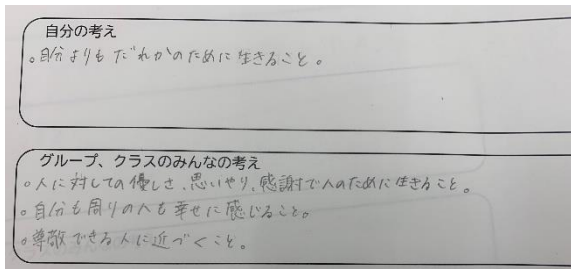 自分の考え
。自分よりもだれかのために生きること。
グループ、クラスのみんなの考え
。人に対しての優しさ、思いやり、感謝で人のために生きること。
。自分も周りの人も幸せに感じること。
。尊敬できる人に近づくこと。